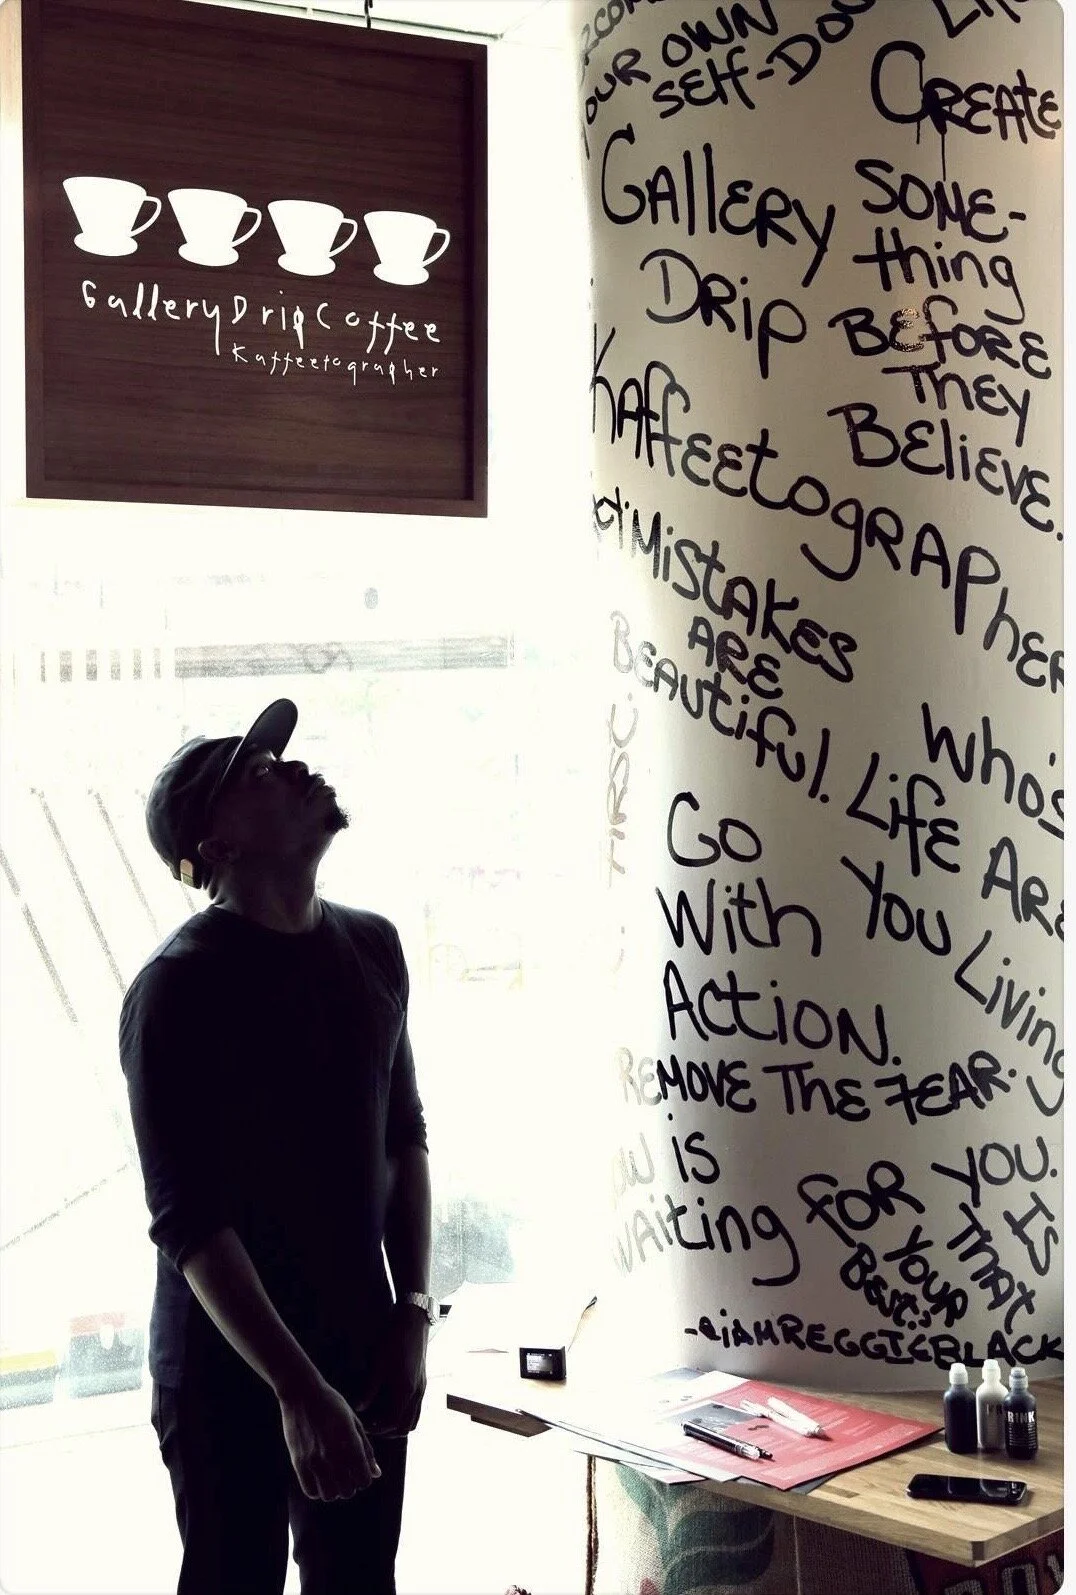 GalleryDripCoffee
Kaffeetographer
YOUR OWN
SELF-DOU
CREATE
SOME-
thing
BEFORE
THEY
BEliEVE.
GAllERY
DRip
KAffEEtoGRAPhER
MiStAKES
ARE
BEAUtifUl.
Who's
LifE ARE
YOU Living
GO
With
ACtiON.
REMOVE THE FEAR.
iS
WAiting FOR YOU.
IS
THAT
YOUR
BEST
-@iAMREGGIEBLACK
RINK